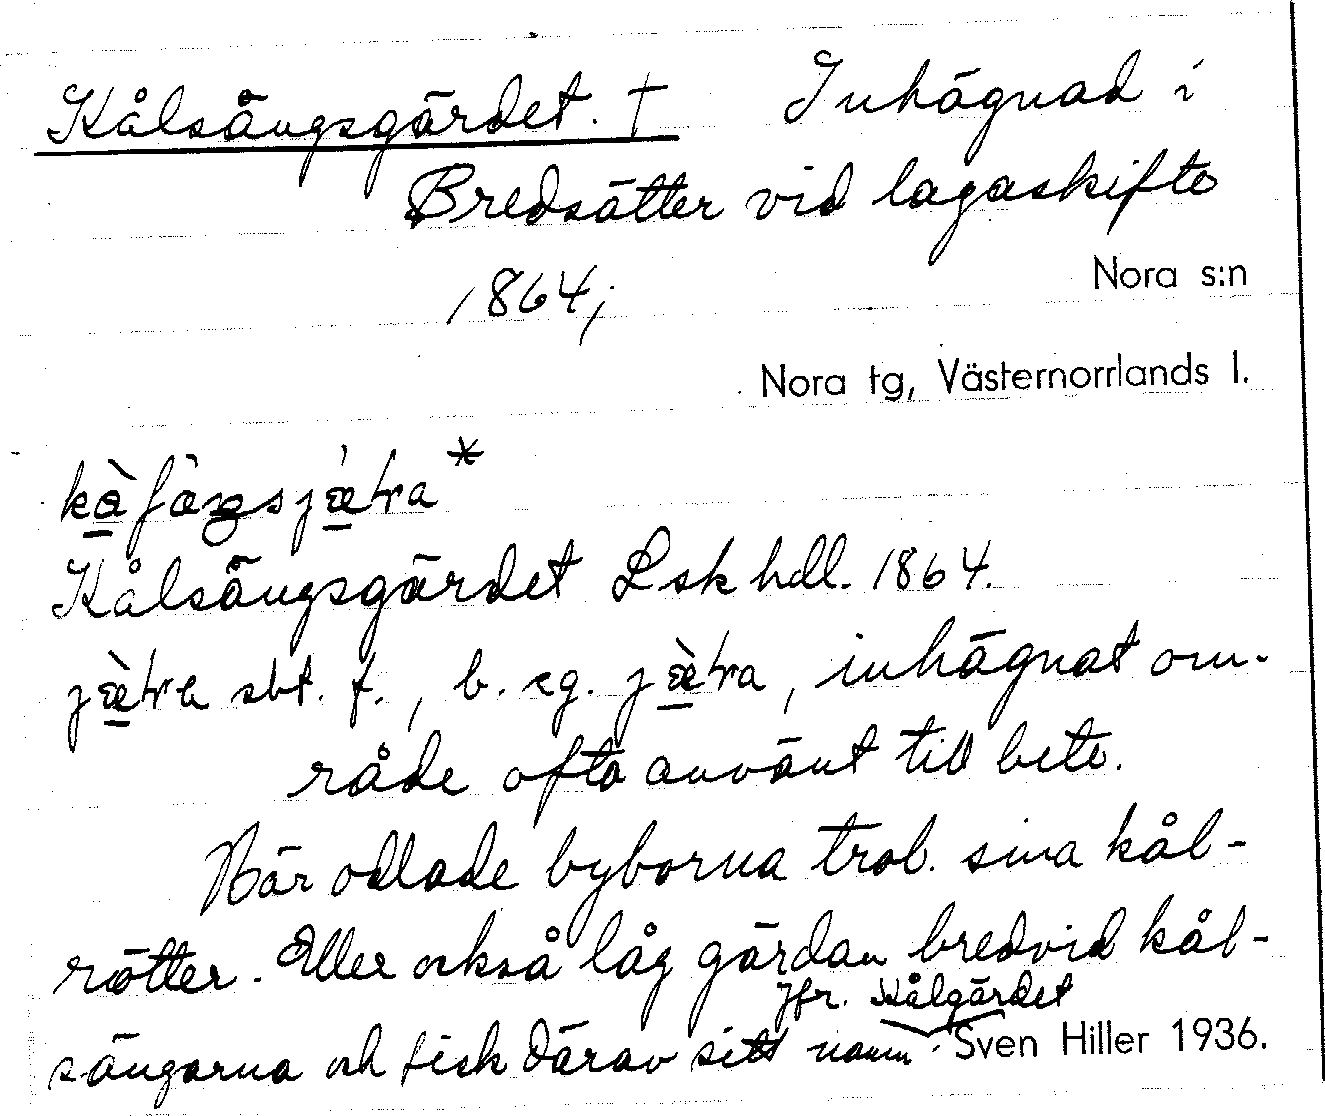 Kålsängsgärdet. † Inhägnad i
Bredsätter vid lagaskifte
1864;
Nora s:n
Nora tg, Västernorrlands l.
Kålsängsgärdet Lsk hdl. 1864.
sbt. f., b. sg. , inhägnat om-
råde ofta använt till bete.
Här odlade byborna trol. sina kål-
rötter. Eller också låg gärdan bredvid kål-
Jfr. Kålgärdet
sängarna och fick därav sitt namn. Sven Hiller 1936.